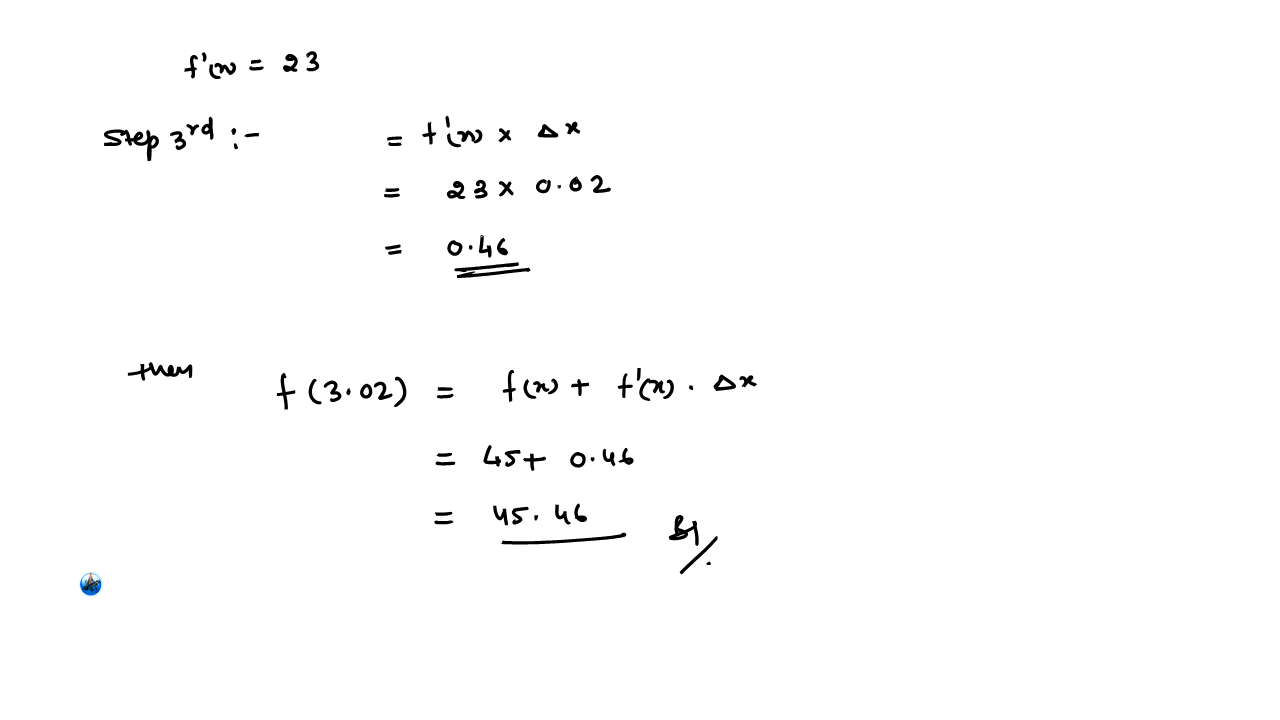 f'(x) = 23
Step 3rd :-
= f'(x) × Δx
= 23 × 0.02
= 0.46
then
f(3.02) = f(x) + f'(x) . Δx
= 45 + 0.46
= 45.46